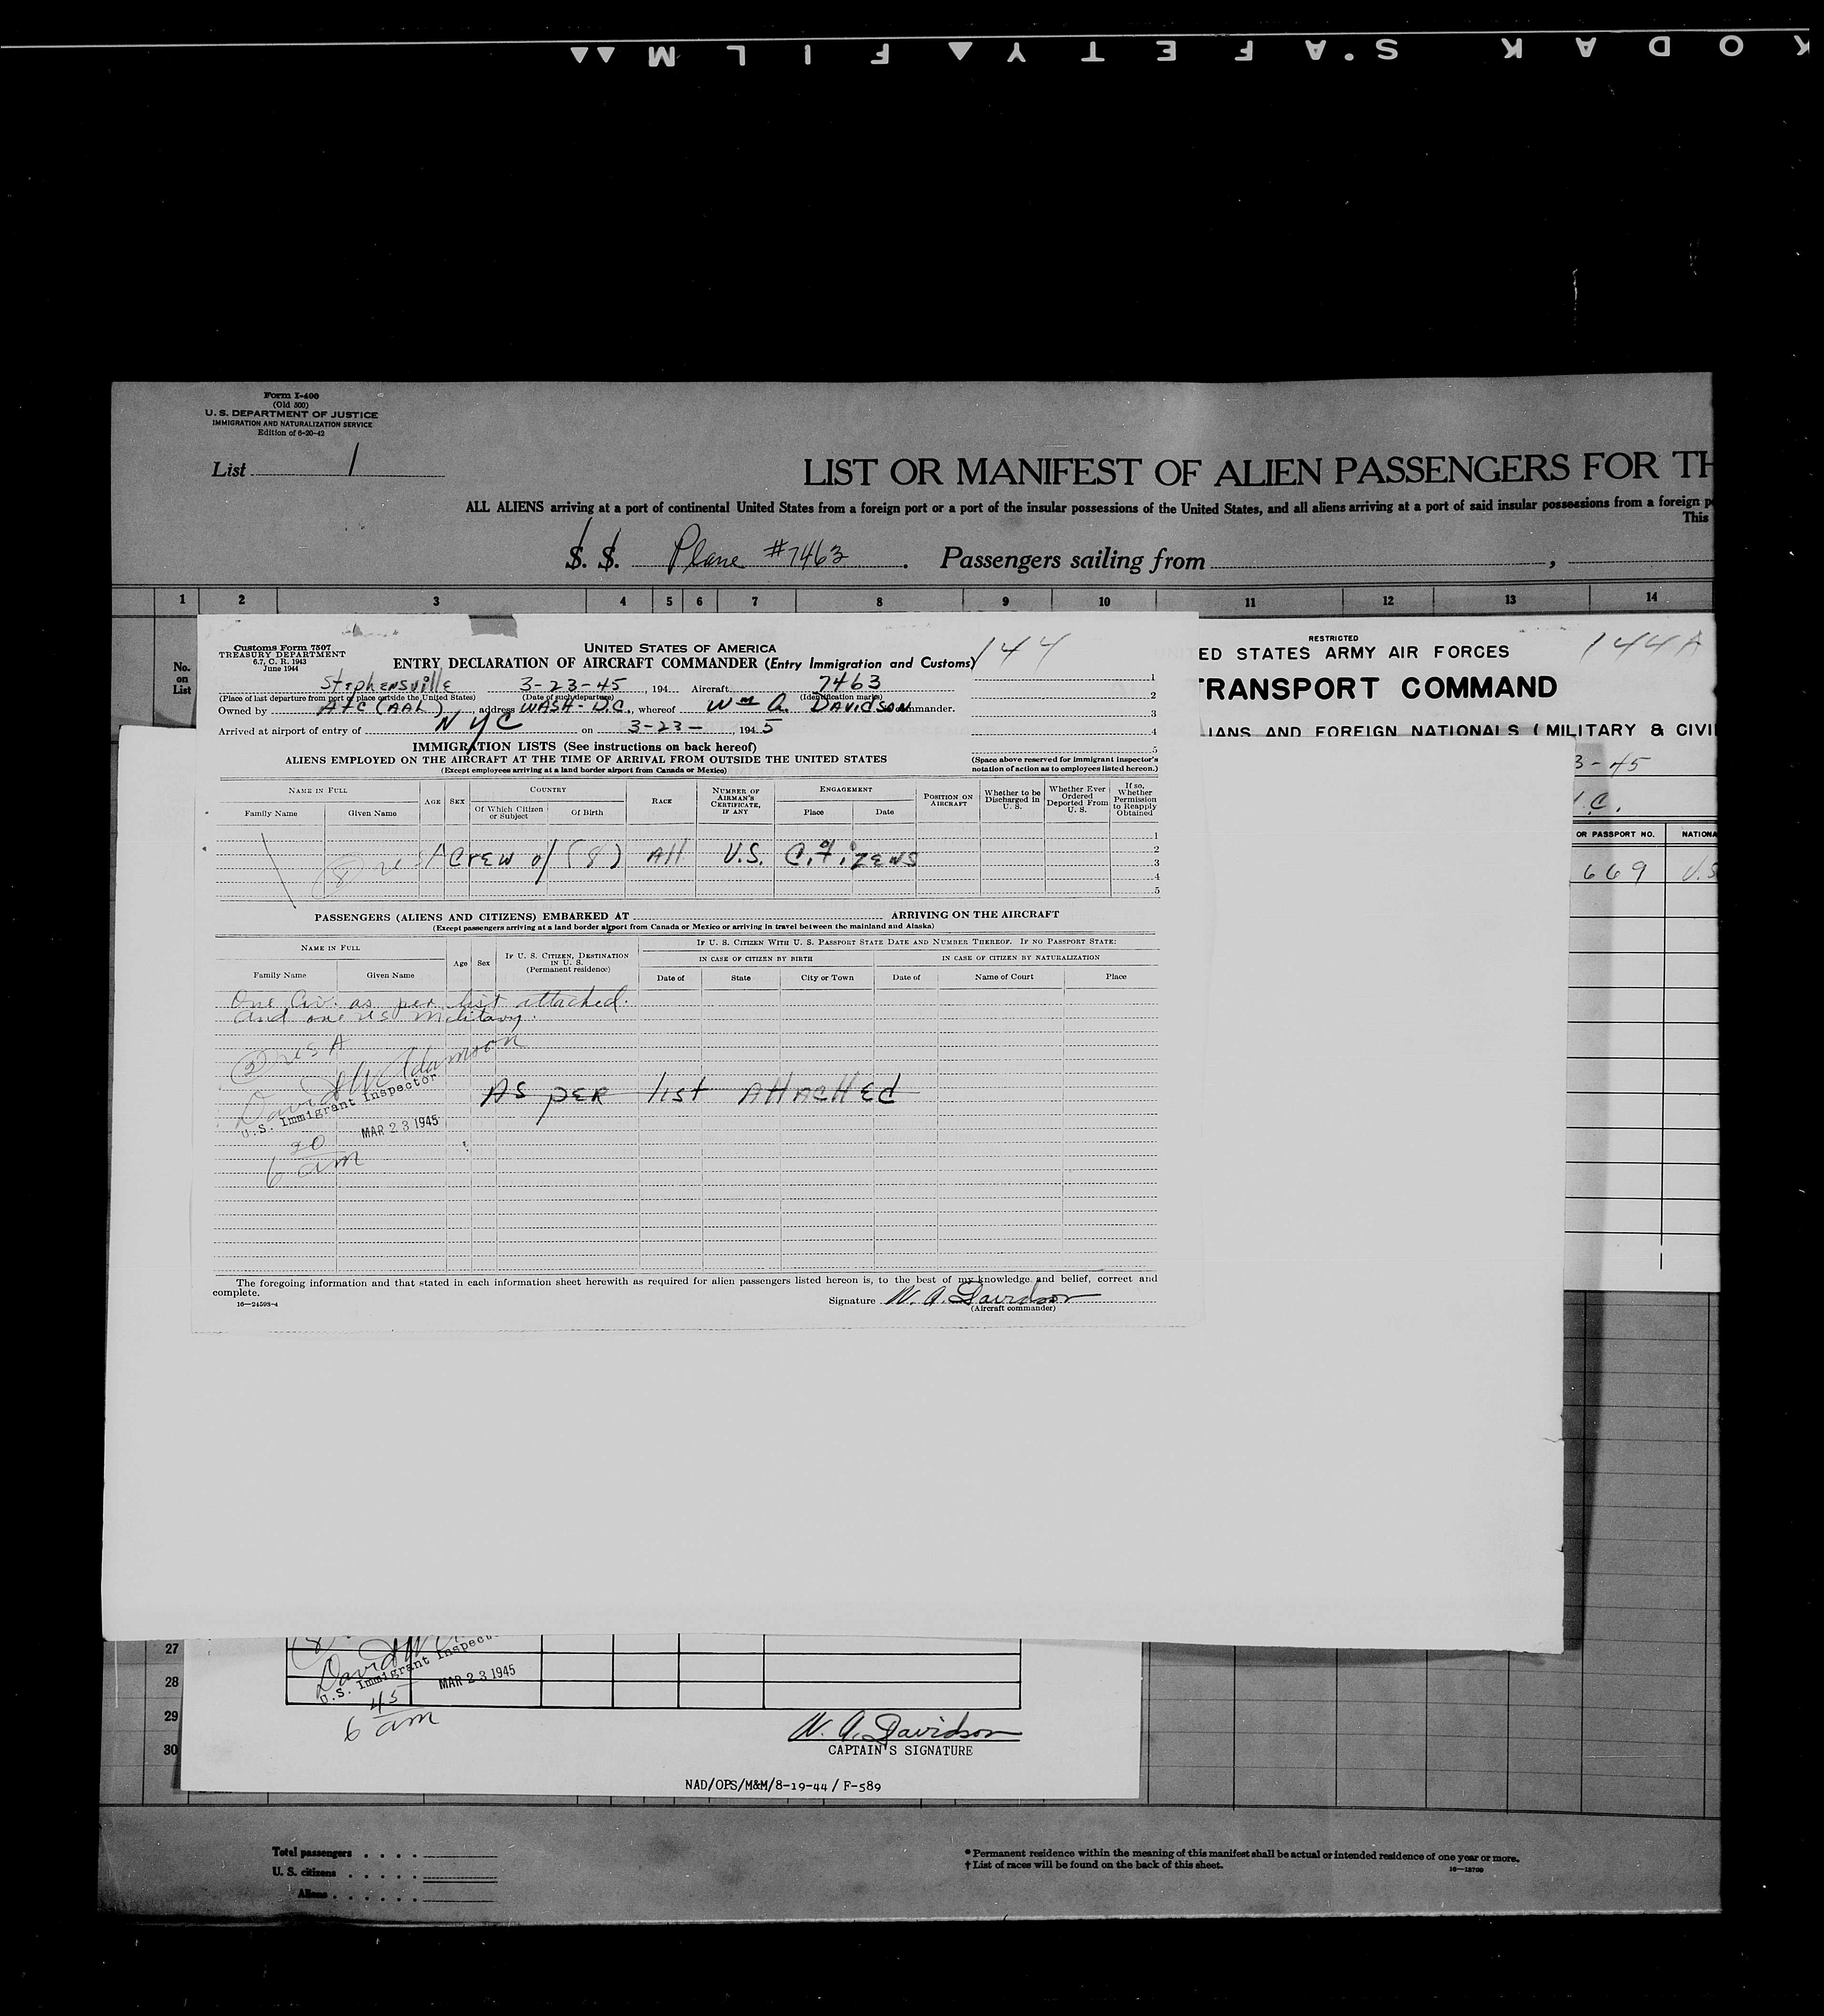 KODAK S'AFETY FILM
Form I-400
(Old 500)
U. S. DEPARTMENT OF JUSTICE
IMMIGRATION AND NATURALIZATION SERVICE
Edition of 6-20-42
List 1
LIST OR MANIFEST OF ALIEN PASSENGERS FOR TH
ALL ALIENS arriving at a port of continental United States from a foreign port or a port of the insular possessions of the United States, and all aliens arriving at a port of said insular possessions from a foreign p
This
S. S. Plane #7463. Passengers sailing from ,
1 2 3 4 5 6 7 8 9 10 11 12 13 14
No. on List
Customs Form 7507
TREASURY DEPARTMENT
6.7, C. R. 1943
June 1944
UNITED STATES OF AMERICA
ENTRY DECLARATION OF AIRCRAFT COMMANDER (Entry Immigration and Customs)
144
Stephensville 3-23-45, 194 Aircraft 7463
(Place of last departure from port or place outside the United States) (Date of such departure) (Identification marks)
Owned by ATC (AAL), address WASH-D.C., whereof Wm A. DAVIDSON commander.
Arrived at airport of entry of NYC on 3-23-, 1945
1
2
3
4
5
(Space above reserved for immigrant inspector's notation of action as to employees listed hereon.)
IMMIGRATION LISTS (See instructions on back hereof)
ALIENS EMPLOYED ON THE AIRCRAFT AT THE TIME OF ARRIVAL FROM OUTSIDE THE UNITED STATES
(Except employees arriving at a land border airport from Canada or Mexico)
NAME IN FULL
Family Name Given Name
AGE SEX
COUNTRY
Of Which Citizen or Subject Of Birth
RACE
NUMBER OF AIRMAN'S CERTIFICATE, IF ANY
ENGAGEMENT
Place Date
POSITION ON AIRCRAFT
Whether to be Discharged in U. S.
Whether Ever Ordered Deported From U. S.
If so, Whether Permission to Reapply Obtained
1
2
3
4
5
(8) USA Crew of (8) All U.S. Citizens
PASSENGERS (ALIENS AND CITIZENS) EMBARKED AT ARRIVING ON THE AIRCRAFT
(Except passengers arriving at a land border airport from Canada or Mexico or arriving in travel between the mainland and Alaska)
NAME IN FULL
Family Name Given Name
Age Sex
IF U. S. CITIZEN, DESTINATION IN U. S.
(Permanent residence)
IF U. S. CITIZEN WITH U. S. PASSPORT STATE DATE AND NUMBER THEREOF. IF NO PASSPORT STATE:
IN CASE OF CITIZEN BY BIRTH IN CASE OF CITIZEN BY NATURALIZATION
Date of State City or Town Date of Name of Court Place
One Civ. as per list attached.
and one US Military.
(2) USA
David W Adamson
U.S. Immigrant Inspector
MAR 23 1945
6 20 am
AS PER list ATTACHED
The foregoing information and that stated in each information sheet herewith as required for alien passengers listed hereon is, to the best of my knowledge and belief, correct and
complete.
16—24593-4
Signature W. A. Davidson
(Aircraft commander)
RESTRICTED
ED STATES ARMY AIR FORCES
144A
TRANSPORT COMMAND
IANS AND FOREIGN NATIONALS (MILITARY & CIVI
3-45
.C.
OR PASSPORT NO. NATIONA
669 U.S
27
28
29
30
David
U.S. Immigrant Inspect
MAR 23 1945
6 45 am
W. A. Davidson
CAPTAIN'S SIGNATURE
NAD/OPS/M&M/8-19-44 / F-589
Total passengers
U. S. citizens
Aliens
* Permanent residence within the meaning of this manifest shall be actual or intended residence of one year or more.
† List of races will be found on the back of this sheet.